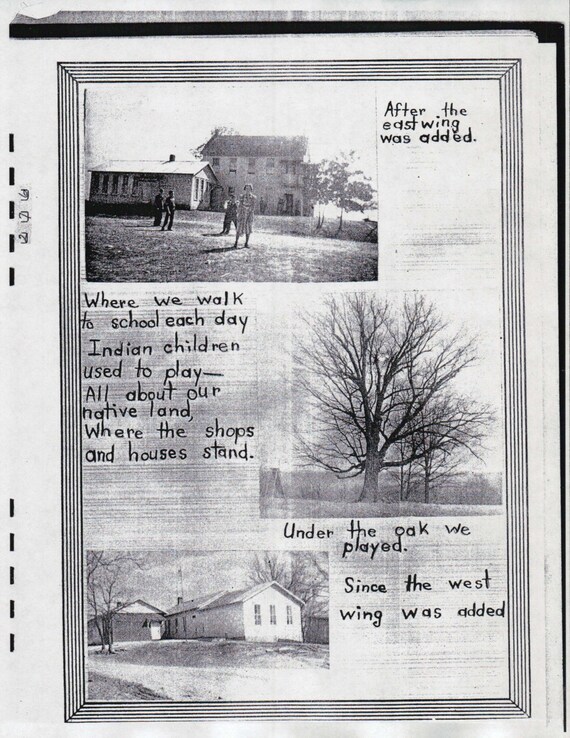 After the
east wing
was added.
Where we walk
to school each day
Indian children
used to play—
All about our
native land,
Where the shops
and houses stand.
Under the oak we
played.
Since the west
wing was added